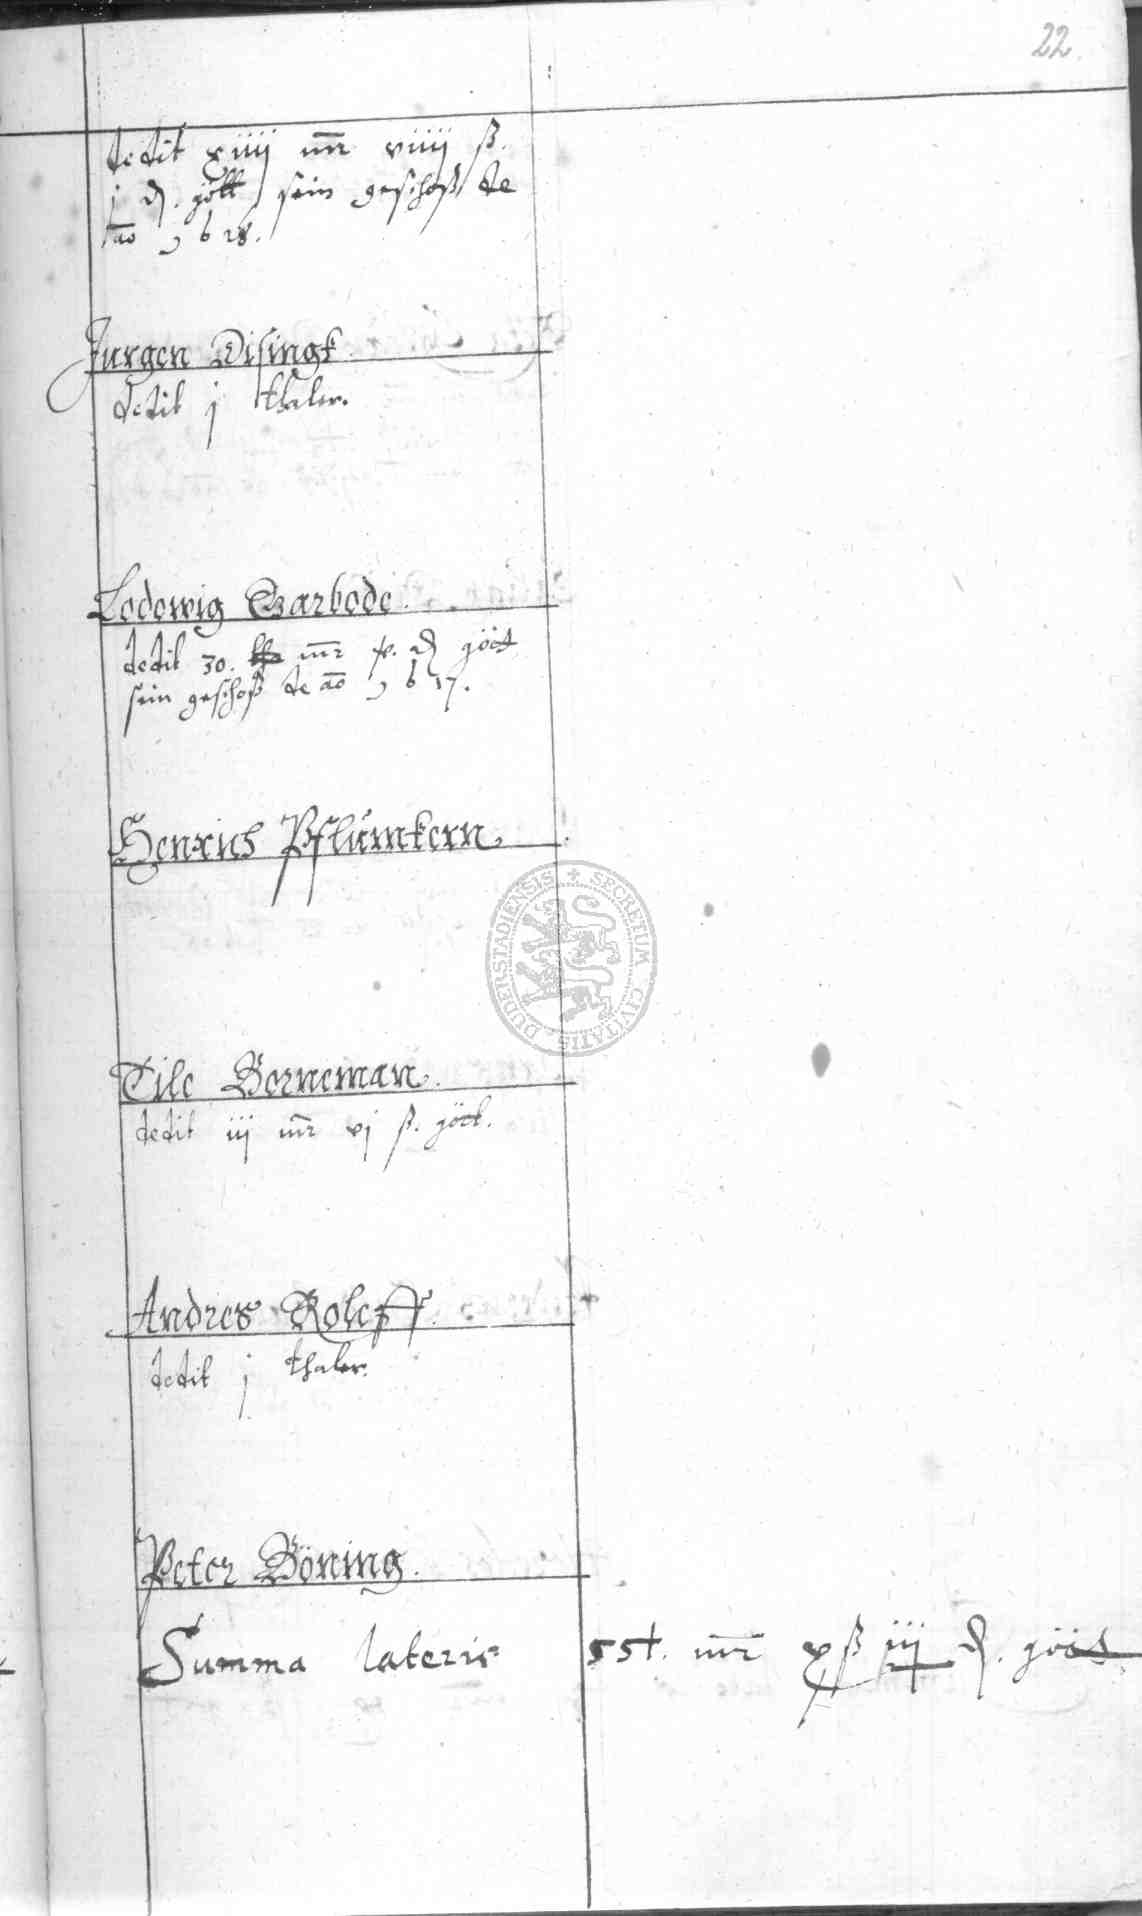 22.
dedit xiiij mr viiij ß.
j ₰. gött sein geschoß de
ao 1628.
Jurgen Disingk.
dedit j thaler.
Lodowig Garbode.
dedit 30. mr ₰ gött
sein geschoß de ao 1617.
Henrich Pflümkern.
SECRETUM CIVITATIS DUDERSTADIENSIS
Tile Borneman.
dedit iij mr vj ß. gött.
Andres Roleff.
dedit j thaler.
Peter Böning.
Summa lateris 55½. mr x ß iij ₰. gött